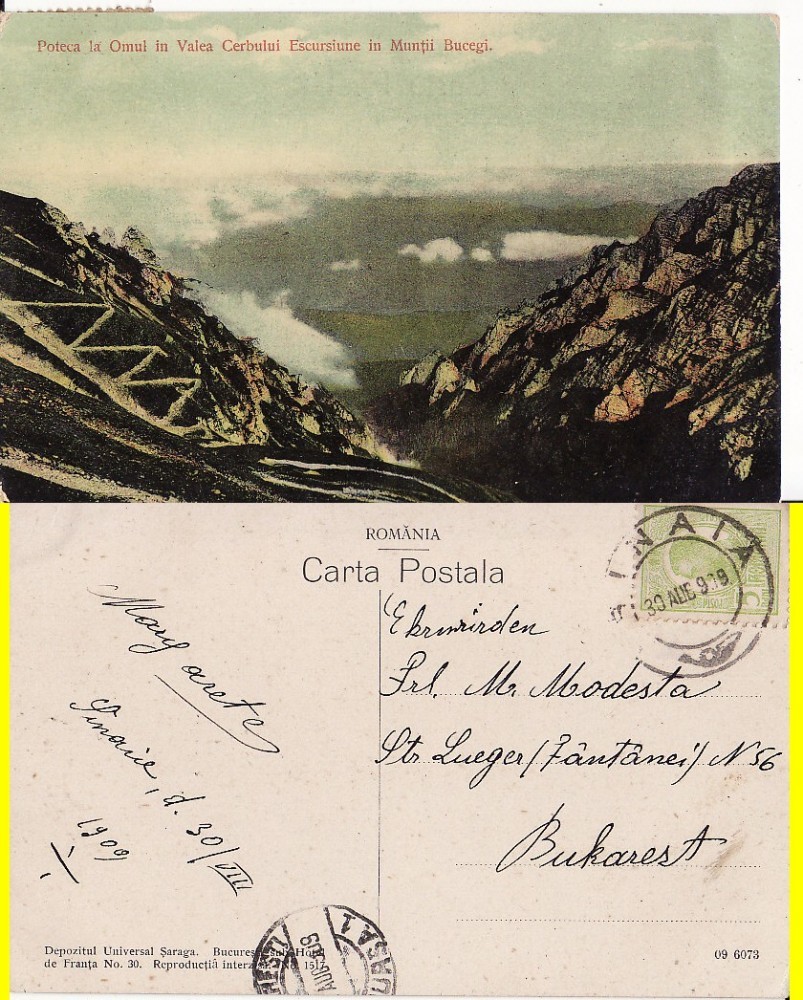 Poteca la Omul in Valea Cerbului Escursiune in Munții Bucegi.
ROMĂNIA
Carta Postala
INAIA
30 AUG 909
Margarete
Sinaie, d. 30/VIII
1909
Frl. M. Modesta
Str Lueger (Fântânei) N 56
Bukarest
Depozitul Universal Șaraga. Hotel
de Franța No. 30. Reproducția No. 1517
09 6073
AUG 09